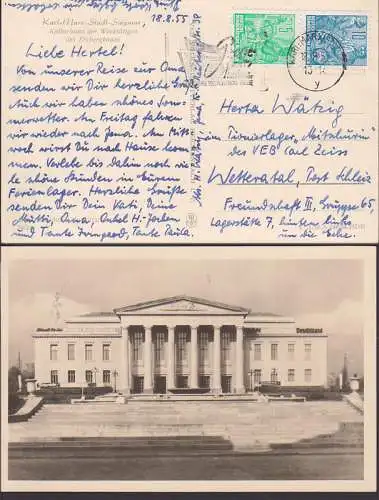 18.8.55
Karl-Marx-Stadt-Siegmar
Kulturhaus der Wismutkumpel
Liebe Hertel!
Von unserer Reise zur Oma
senden wir Dir herzliche Grüße
Auch wir haben schönes Som-
merwetter. Am Freitag fahren
wir wieder nach Jena. Am Mitt-
woch wirst Du nach Hause kom-
men. Verlebe bis dahin noch vie-
le schöne Stunden in Eurem
Ferienlager. Herzliche Grüße
senden Dir Dein Kati, Deine
Mutti, Oma, Onkel H-Jochen
und Tante Irmgard, Tante Paula.
Herta Wätzig
im Pionierlager „Mitschurin"
des VEB Carl Zeiss
Wetteratal, Post Schleiz
Freundschaft III, Gruppe 65,
Lagerstätte 7, hinten links
um die Ecke.
Deutschland